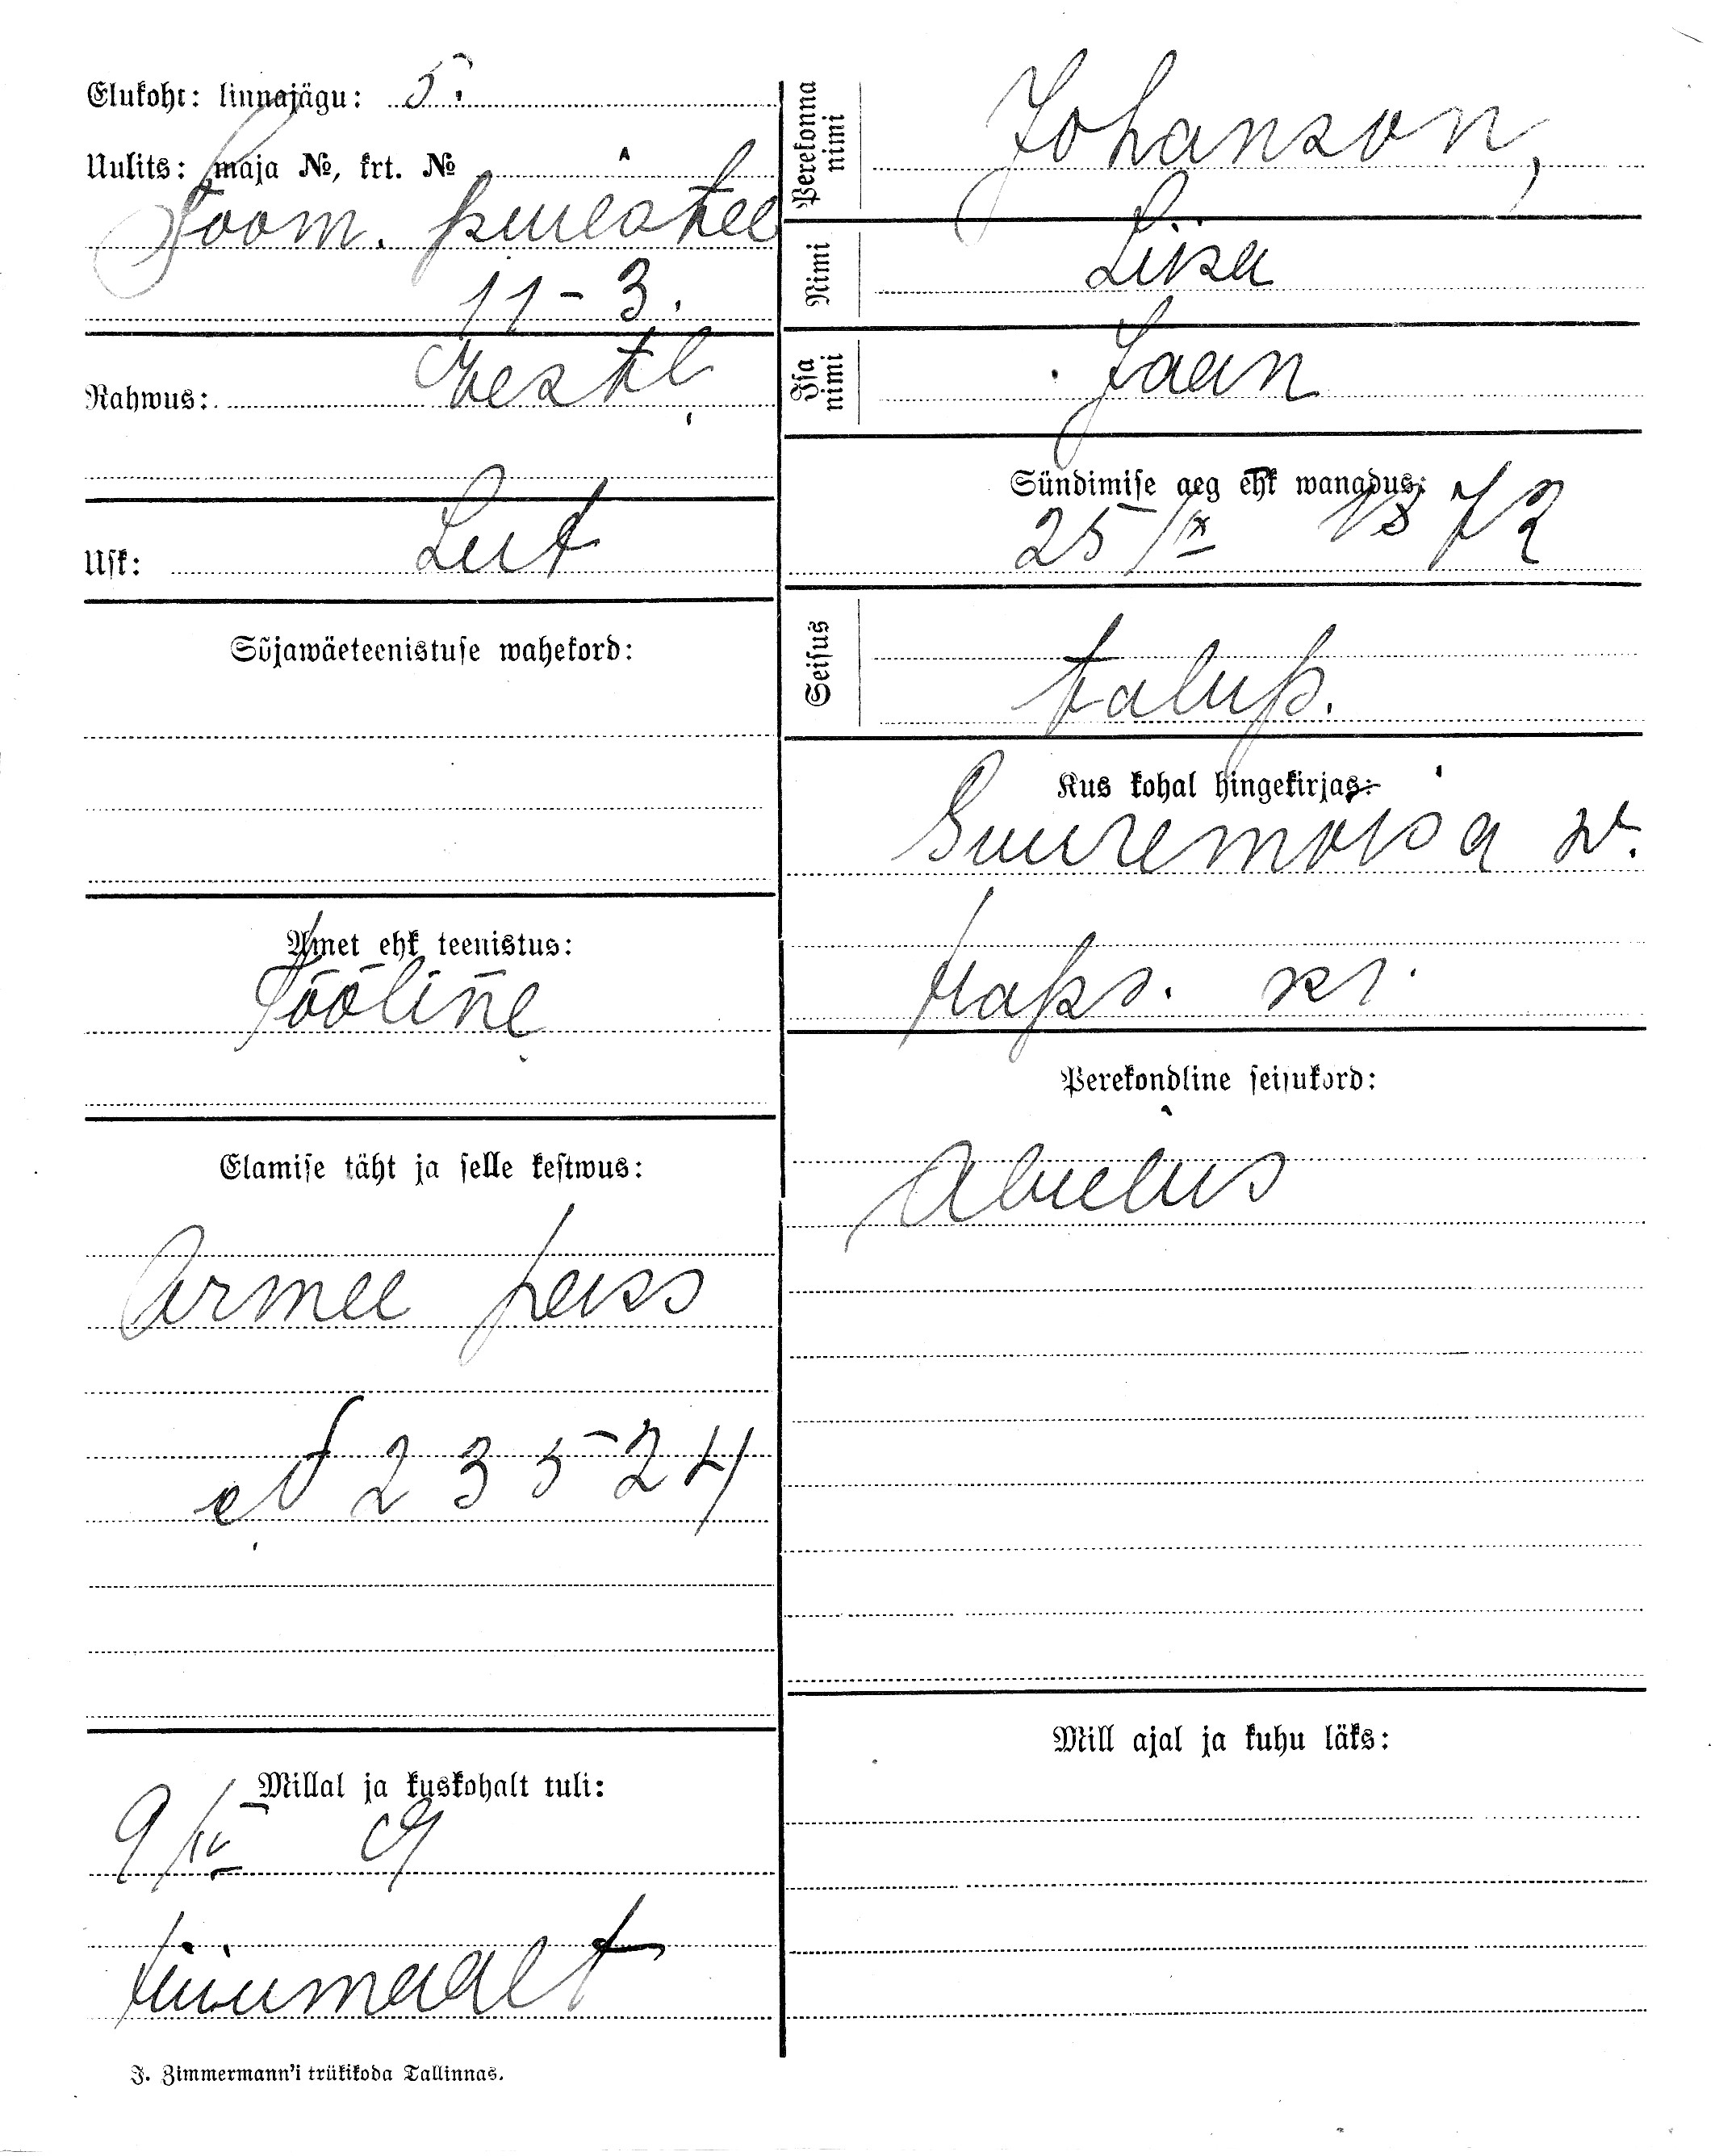 Elukoht: linnajägu: 5.
Uulits: maja №, krt. №
Toom. puiestee
11-3.
Rahwus: Eestl.
Usk: Lut
Sõjawäeteenistuse wahekord:
Amet ehk teenistus:
Tööline
Elamise täht ja selle kestwus:
Armee pass
№ 23524
Millal ja kuskohalt tuli:
9/IV 19
Hiiumaalt
J. Zimmermann'i trükikoda Tallinnas.
Perekonna nimi Johanson,
Nimi Liisa
Isa nimi Jaan
Sündimise aeg ehk wanadus:
25/IX 1872
Seisus talup.
Kus kohal hingekirjas:
Suuremõisa w.
Haps. kr.
Perekondline seisukord:
Abielus
Mill ajal ja kuhu läks: